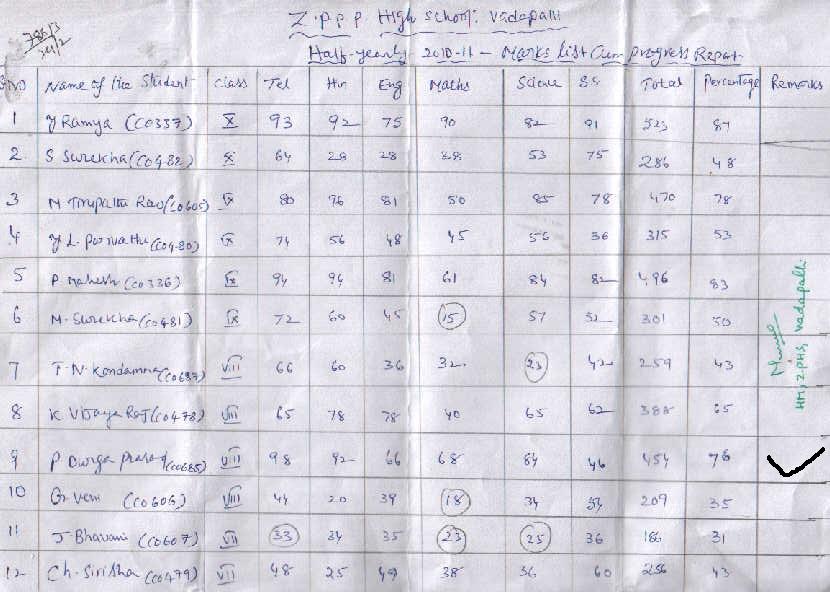 785/3
341/2
Z.P.P.P High school: Vadapalli
Half-yearly 2010-11 - Marks List Cum progress Report
S.NO Name of the Student Class Tel Hin Eng Maths Science S.S Total Percentage Remarks
1 Y Ramya (C0337) X 93 92 75 90 82 91 523 87
2 S Surekha (C0482) X 64 28 28 38 53 75 286 48
3 M Tirupathi Rao (C0605) IX 80 76 81 50 85 78 470 78
4 Y L. Parvathi (C0480) IX 74 56 48 45 56 36 315 53
5 P Mahesh (C0336) IX 94 94 81 61 84 82 496 83
6 M. Surekha (C0481) IX 72 60 45 15 57 52 301 50
7 T. N. Kondamma VIII 66 60 36 32 23 42 259 43
8 K Vijaya Raj (C0478) VIII 65 78 78 40 65 62 388 65
9 P Durga prasad (C0685) VIII 98 92 66 68 84 46 454 76
10 G. Veni (C0606) VIII 44 20 39 18 34 54 209 35
11 J. Bhavani (C0607) VII 33 34 35 23 25 36 186 31
12 Ch. Sirisha (C0479) VII 48 25 49 38 36 60 256 43
HM, Z.PHS, Vadapalli.